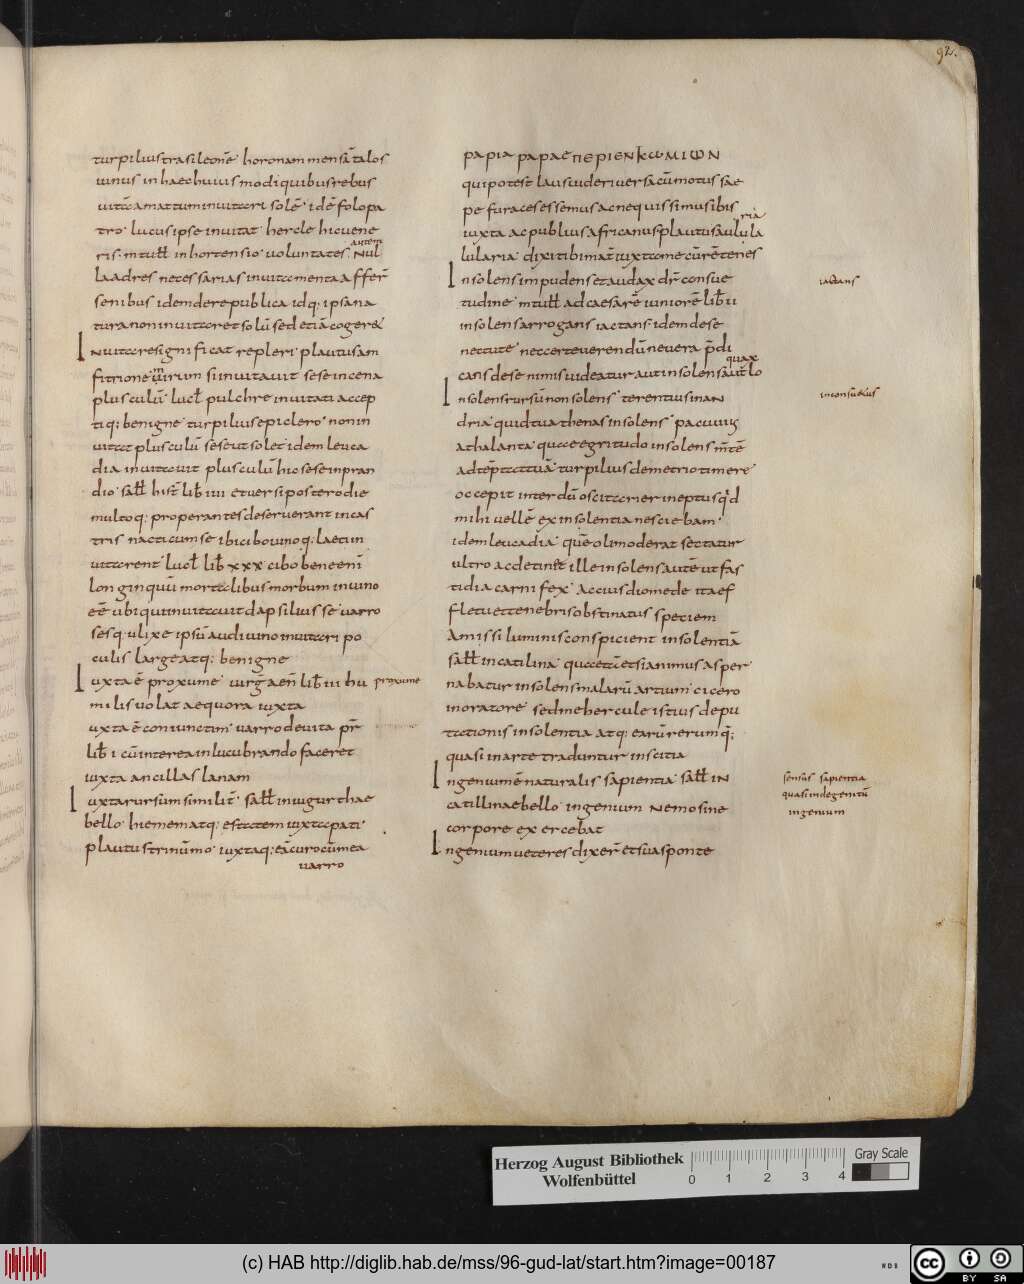 92.
turpilius trasileonē horonam mensā talos
uinus in haec huius modi quibus rebus
uitā amat tum inuitari solē idē folopa
tro lucus ipse inuitat hercle hic uene
ris. m tull in hortensio uoluntates. Nul
autem
la ad res necessarias inuitamenta afferr̄
senibus idem de republica idq; ipsa na
tura non inuitaret solū sed etiā cogere&
Inuitare significat repleri plautus am
fitrione mirum si inuitauit sese in cena
plusculū lucł pulchre inuitati accep
tiq; benigne turpilius epiclero non in
uitat plusculū sese ut solet idem leuca
dia inuitauit plusculū hic sese in pran
dio sałł hist lib iiii et uersi postero die
multoq; properantes deserverant in cas
tris nacti cum se ibi cibo uinoq; laeti in
uitarent lucł lib xxx cibo bene eni
longinquū mortalibus morbum in uino
eē ubi qui inuitauit dapsilius se uarro
sesq. ulixe ipsū audiui no inuitari po
culis large atq; benigne
Iuxta ē proxume uirḡ aen̄ lib iii hu
proxume
milis uolat aequora iuxta
iuxta ē coniunctim uarro de uita pr̄
lib i cū interea in lucubrando faceret
iuxta ancillas lanam
Iuxta rursum similit sałł in iugurthae
bello hiemem atq; estatem iuxta pati
plautus trinūmo iuxtaq; eā curo cū mea
uarro
papia papae ΠΕΡΙΕΝΚΩΜΙΩΝ
qui potest laus uideri uersa cū motus sae
pe furaces essemus ac nequissimus ibis
iuxta ac publius africanus plautus aulula
ria
lularia dixi tibi mat iuxta me cū rē tenes
Insolens impudens et audax dr̄ consue
tudine m tull ad caesarē iuniorē lib ii
iactans
insolens arrogans iactans idem de se
nectute nec certe uerendū ne uera p̄di
quax
cans de se nimis uideatur aut insolens aut lo
Insolens rursū non solens terentius in an
inconsuetus
dria quid tu athenas insolens pacuuius
athalanta quae egritudo insolens m̄tē
adtēptat tuā turpilius demetrio timere
occepit interdū oscitarier ineptus q'd
mihi uellē ex insolentia nesciebam
idem leucadia quē olim oderat sectatur
ultro ac detinet ille insolens autē ut fas
tidia carnifex accius diomede ita ef
fletu et tenebris obstinatus speciem
amissi luminis conspicient insolentiā
sałł in catilina quae tā etsi animus asper
nabatur insolens malarū artium cicero
in oratore sed mehercule istius depu
tationis insolentia atq; earū rerum q̄;
quasi in arte traduntur inscitia
Ingenium ē naturalis sapientia sałł in
sensus sapientia
quasi indegenitū
ingenium
catillinae bello ingenium nemo sine
corpore exercebat
Ingenium ueteres dixer̄ et sua sponte
Herzog August Bibliothek
Wolfenbüttel
0 1 2 3 4
Gray Scale
(c) HAB http://diglib.hab.de/mss/96-gud-lat/start.htm?image=00187
WDB
cc BY SA